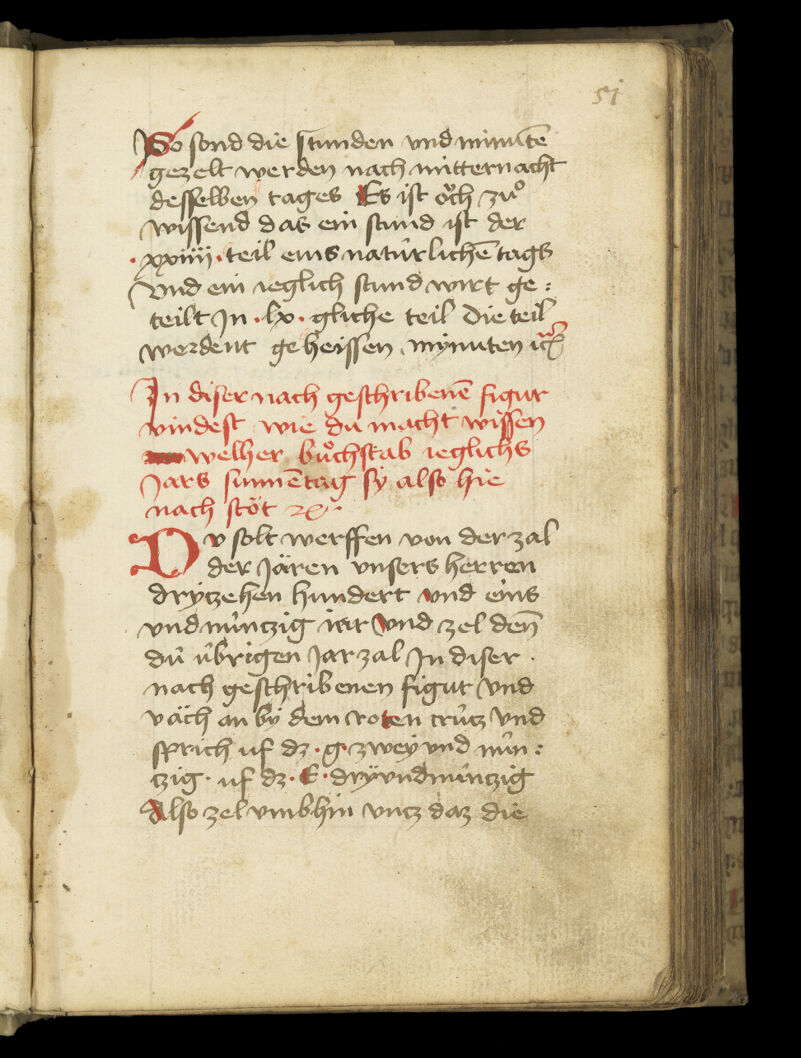 51
So sond die stunden vnd minutē
gezelt werden nach mitternacht
desselben tages Es ist öch zuͦ
wissend das ein stund ist der
·xxiiii· teil eins natúrlichē tags
Vnd ein ieglich stund wirt ge:
teilt Jn ·lx· gliche teil die teil
werdent geheissen mynuten
Jn diser nach geschribenē figur
vindest wie du macht wissen
welher buͦchstab ieglichs
Jars sunnētag sy also hie
nach stöt
Dv solt werffen von der zal
der Jären vnsers herren
drytzehen hundert vnd eins
vnd núntzig iar Vnd zel denn̄
dú úbrigen Jar zal Jn diser ·
nach geschribenen figur Vnd
väch an by dem roten crútz Vnd
sprich uf dz ·g· zwey vnd nún:
tzig· uf dz ·E· drÿvndnúntzig
Also zel vmbhin vntz daz die